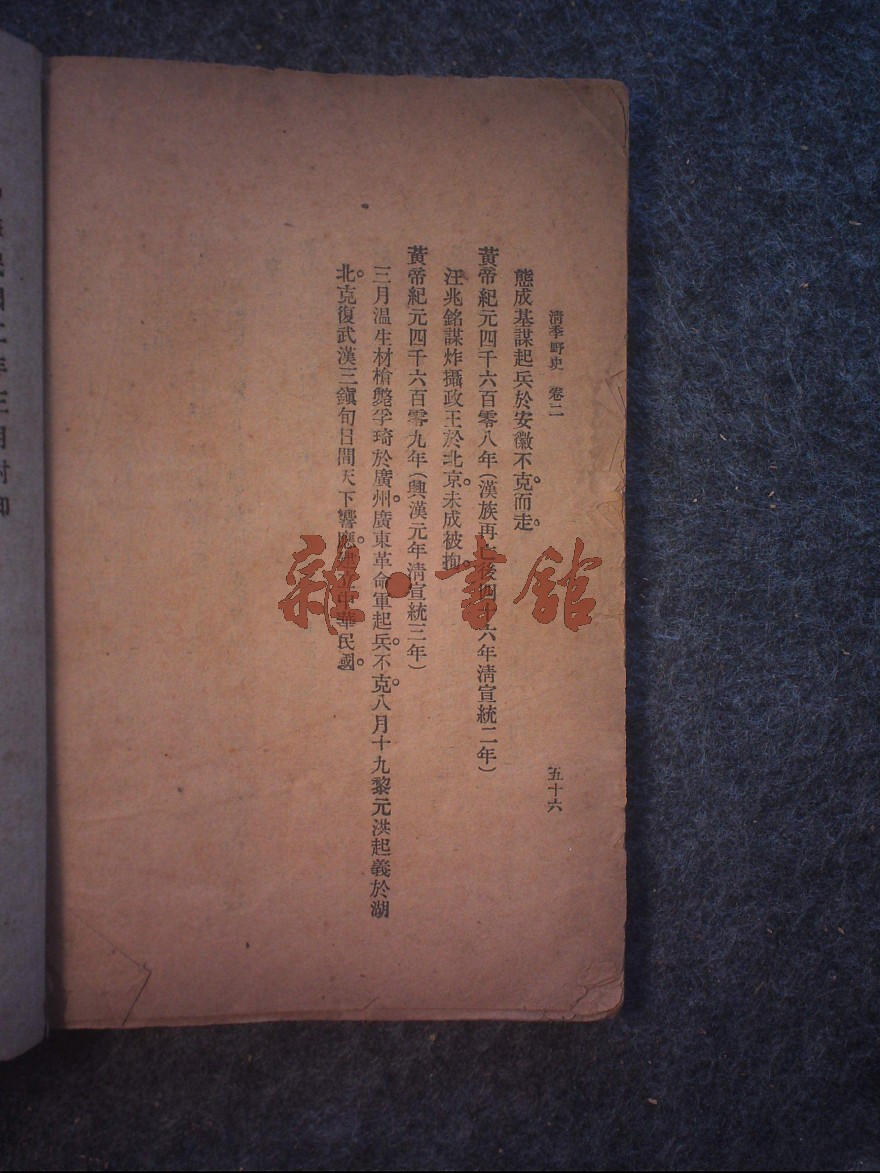 清季野史 卷二
五十六
熊成基謀起兵於安徽不克。而走。
黃帝紀元四千六百零八年(漢族再亡後四十六年清宣統二年)
汪兆銘謀炸攝政王於北京。未成被拘。
黃帝紀元四千六百零九年(興漢元年清宣統三年)
三月温生材槍斃孚琦於廣州。廣東革命軍起兵。不克。八月十九黎元洪起義於湖
北。克復武漢三鎮旬日間天下響應。建立中華民國。
雜·書館